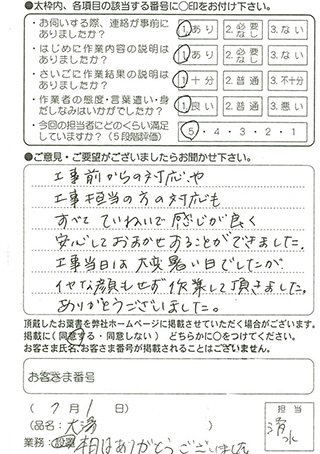 ●太枠内、各項目の該当する番号に○印をお付け下さい。
・お伺いする際、連絡が事前に
ありましたか？
1.あり 2.必要なし 3.ない
・はじめに作業内容の説明は
ありましたか？
1.あり 2.必要なし 3.ない
・さいごに作業結果の説明は
ありましたか？
1.十分 2.普通 3.不十分
・作業者の態度・言葉遣い・身
だしなみはいかがでしたか？
1.良い 2.普通 3.悪い
・今回の担当者にどのくらい満足
していますか？（5段階評価）
5・4・3・2・1
●ご意見・ご要望がございましたらお聞かせ下さい。
工事前からの対応や
工事担当の方の対応も
すべて ていねいで 感じが良く
安心しておまかせすることができました。
工事当日は大変暑い日でしたが
イヤな顔もせず作業して頂きました。
ありがとうございました。
頂戴したお葉書を弊社ホームページに掲載させていただく場合がございます。
掲載に（同意する・同意しない）どちらかに○をつけてください。
お客さま氏名、お客さま番号が掲載されることはございません。
お客さま番号
（ 7月 1日）
（品名：大湯 ）
業務：設置
本日はありがとうございました
担当
清水